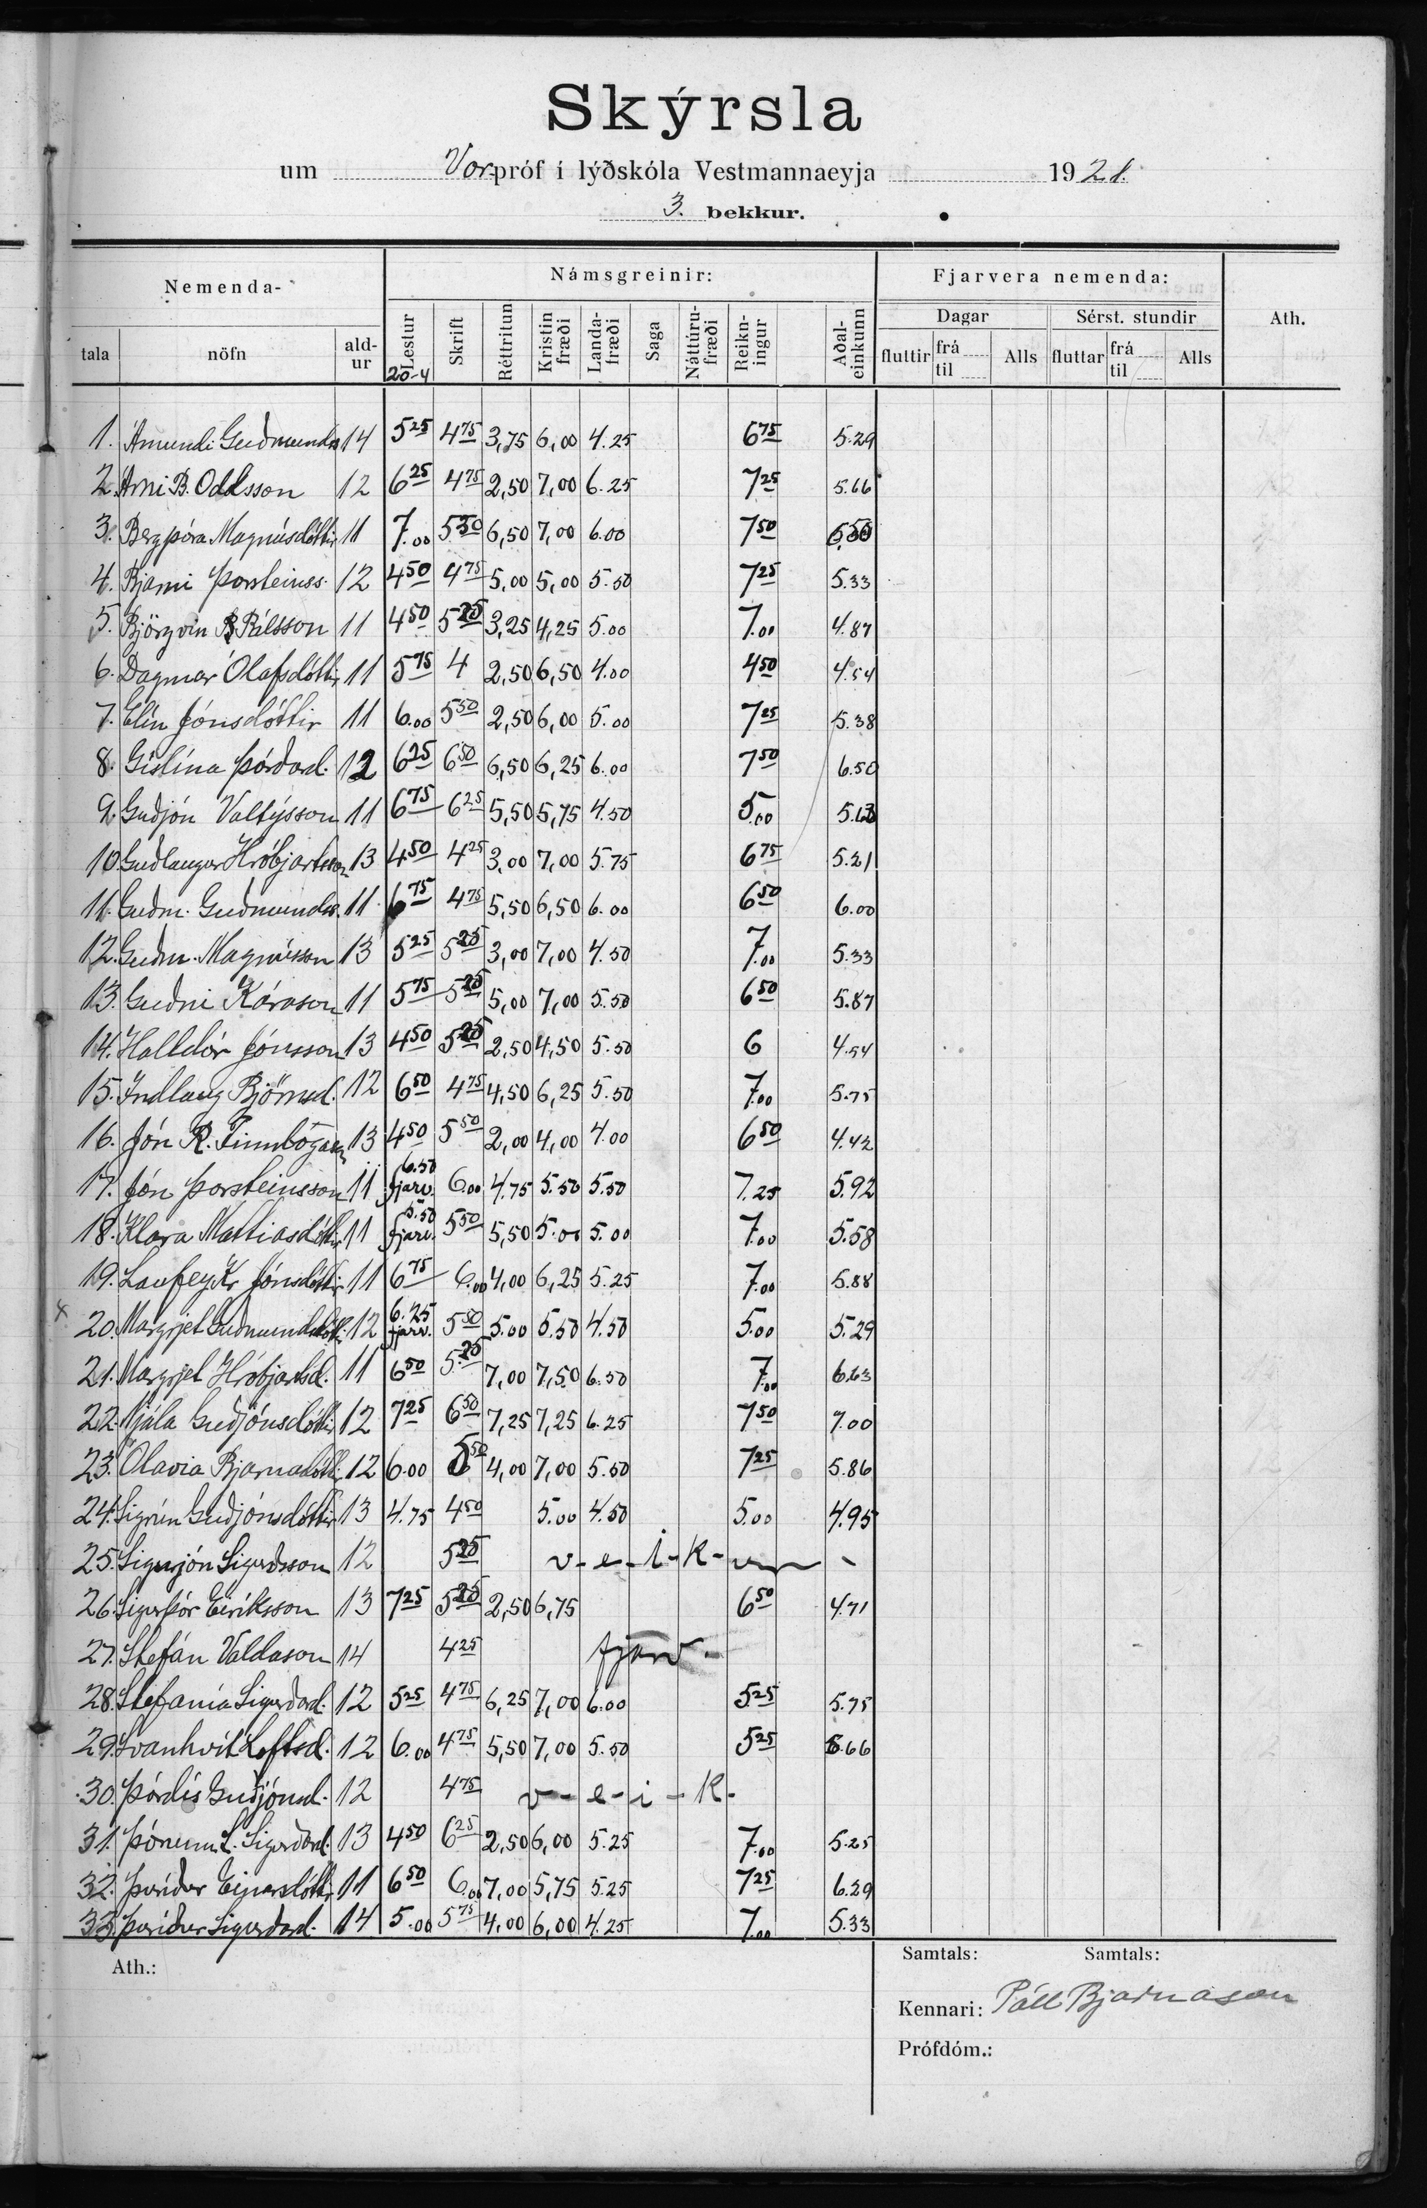 Skýrsla
um Vorpróf í lýðskóla Vestmannaeyja 1921.
3. bekkur.
Nemenda- Námsgreinir: Fjarvera nemenda: Ath.
Dagar Sérst. stundir
tala nöfn ald-ur Lestur Skrift Réttritun Kristinfræði Landa-fræði Saga Náttúru-fræði Reikn-ingur Aðal-einkunn fluttir frá til Alls fluttar frá til Alls
20-4
1. Ámundi Guðmunds 14 5 25 4 75 3,75 6,00 4.25 6 75 5.29
2. Árni B. Oddsson 12 6 25 4 75 2,50 7,00 6.25 7 25 5.66
3. Bergþóra Magnúsdóttir 11 7.00 5 50 6,50 7,00 6.00 7 50
4. Bjarni Þorsteinss. 12 4 50 4 75 5,00 5,00 5.50 7 25 5.33
5. Björgvin Pálsson 11 4 50 5 25 3,25 4,25 5.00 7.00 4.87
6. Dagmar Ólafsdóttir 11 5 75 4 2,50 6,50 4.00 4 50 4.54
7. Elín Jónsdóttir 11 6.00 5 50 2,50 6,00 5.00 7 25 5.38
8. Gíslína Þórðard. 12 6 25 6 50 6,50 6,25 6.00 7 50 6.50
9. Guðjón Valtýsson 11 6 75 6 25 5,50 5,75 4.50 5.00 5.63
10. Guðlaugur Hróbjartsson 13 4 50 4 25 3,00 7,00 5.75 6 75 5.21
11. Guðm. Guðmundss. 11 6 75 4 75 5,50 6,50 6.00 6 50 6.00
12. Guðm. Magnússon 13 5 25 5 25 3,00 7,00 4.50 7.00 5.33
13. Guðni Kárason 11 5 75 5 25 5,00 7,00 5.50 6 50 5.87
14. Halldór Jónsson 13 4 50 5 25 2,50 4,50 5.50 6 4.54
15. Indlaug Björnsd. 12 6 50 4 75 4,50 6,25 5.50 7.00 5.75
16. Jón R. Finnbogason 13 4 50 5 50 2,00 4,00 4.00 6 50 4.42
17. Jón Þorsteinsson 11 6.50 fjarv. 6.00 4.75 5.50 5.50 7.25 5.92
18. Klara Mattiasdóttir 11 5.50 fjarv. 5 50 5,50 5.00 5.00 7.00 5.58
19. Laufey Kr Jónsdóttir 11 6 75 6.00 4,00 6,25 5.25 7.00 5.88
x 20. Margrjet Guðmundsdótt. 12 6.25 fjarv. 5 50 5.00 5.50 4.50 5.00 5.29
21. Margrjet Hróbjartsd. 11 6 50 5.25 7,00 7,50 6.50 7.00 6.63
22. Njála Guðjónsdóttir 12 7 25 6 50 7,25 7,25 6.25 7 50 7.00
23. Ólavia Bjarnadóttir 12 6.00 5 50 4,00 7,00 5.50 7 25 5.86
24. Sigrún Guðjónsdóttir 13 4.75 4 50 5.00 4.50 5.00 4.95
25. Sigurjón Sigurðsson 12 5 25 v-e-i-k-ur -
26. Sigurþór Eiríksson 13 7 25 5 25 2,50 6,75 6 50 4.71
27. Stefán Valdason 14 4 25 fjarv.
28. Stefanía Sigurðard. 12 5 25 4 75 6,25 7,00 6.00 5 25 5.75
29. Svanhvít Loftsd. 12 6.00 4 75 5,50 7,00 5.50 5 25 5.66
30. Þórdís Guðjónsd. 12 4 75 v-e-i-k-
31. Þórunn L. Sigurðard. 13 4 50 6 25 2,50 6,00 5.25 7.00 5.25
32. Þuríður Einarsdóttir 11 6 50 6.00 7,00 5,75 5.25 7 25 6.29
33. Þuríður Sigurðard. 14 5.00 5 75 4,00 6,00 4.25 7.00 5.33
Ath.:
Samtals: Samtals:
Kennari: Páll Bjarnason
Prófdóm.: